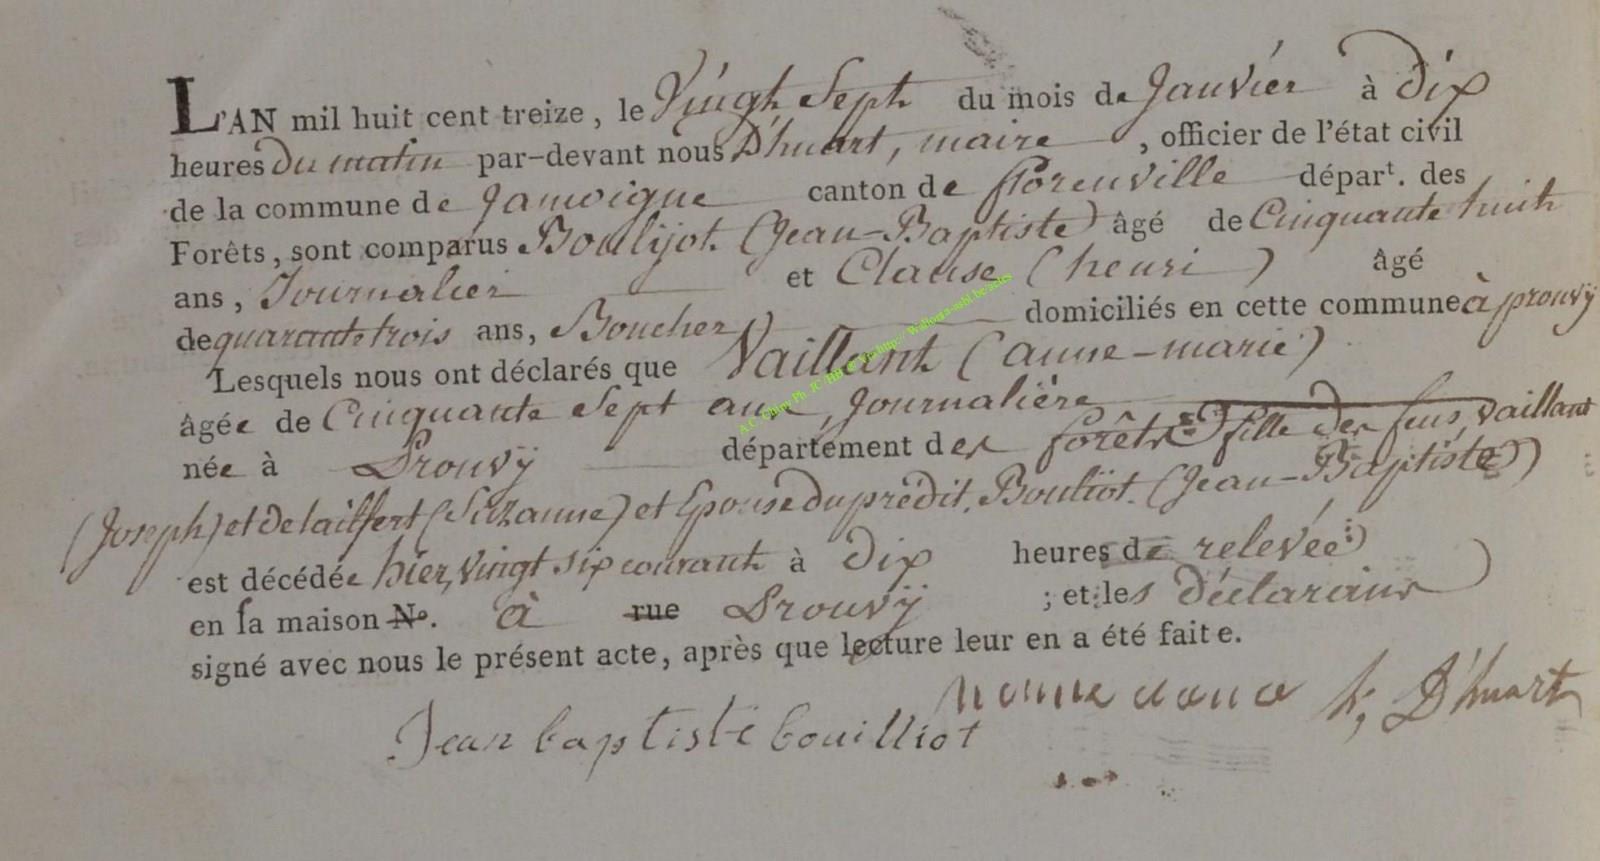 L'AN mil huit cent treize, le Vingt Sept du mois de Janvier à dix
heures du matin par-devant nous D'huart, maire, officier de l'état civil
de la commune de Jamoigne canton de florenville départ. des
Forêts, sont comparus Boulijot (Jean-Baptiste) âgé de Cinquante huit
ans, Journalier et Clause (henri) âgé
de quarante trois ans, Boucher domiciliés en cette commune à prouvÿ
Lesquels nous ont déclarés que Vaillant (anne-marie)
âgée de Cinquante Sept ans, Journalière
née à ProuvÿÿÿÿA département des forêts fille des feus, vaillant
(Joseph) et de (Suzanne) et Epouse du prédit, Bouliot. (Jean-Baptiste)
est décédée hier, vingt six courant à dix heures de relevée
en sa maison No. à rue Prouvÿ ; et les déclarans
signé avec nous le présent acte, après que lecture leur en a été faite.
h, D'huart
Jean baptiste bouilliot
A.C. Chiny Ph. JC